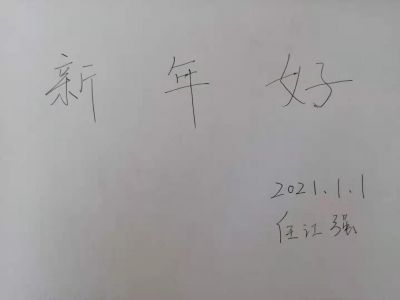 新年好
2021.1.1
任江强